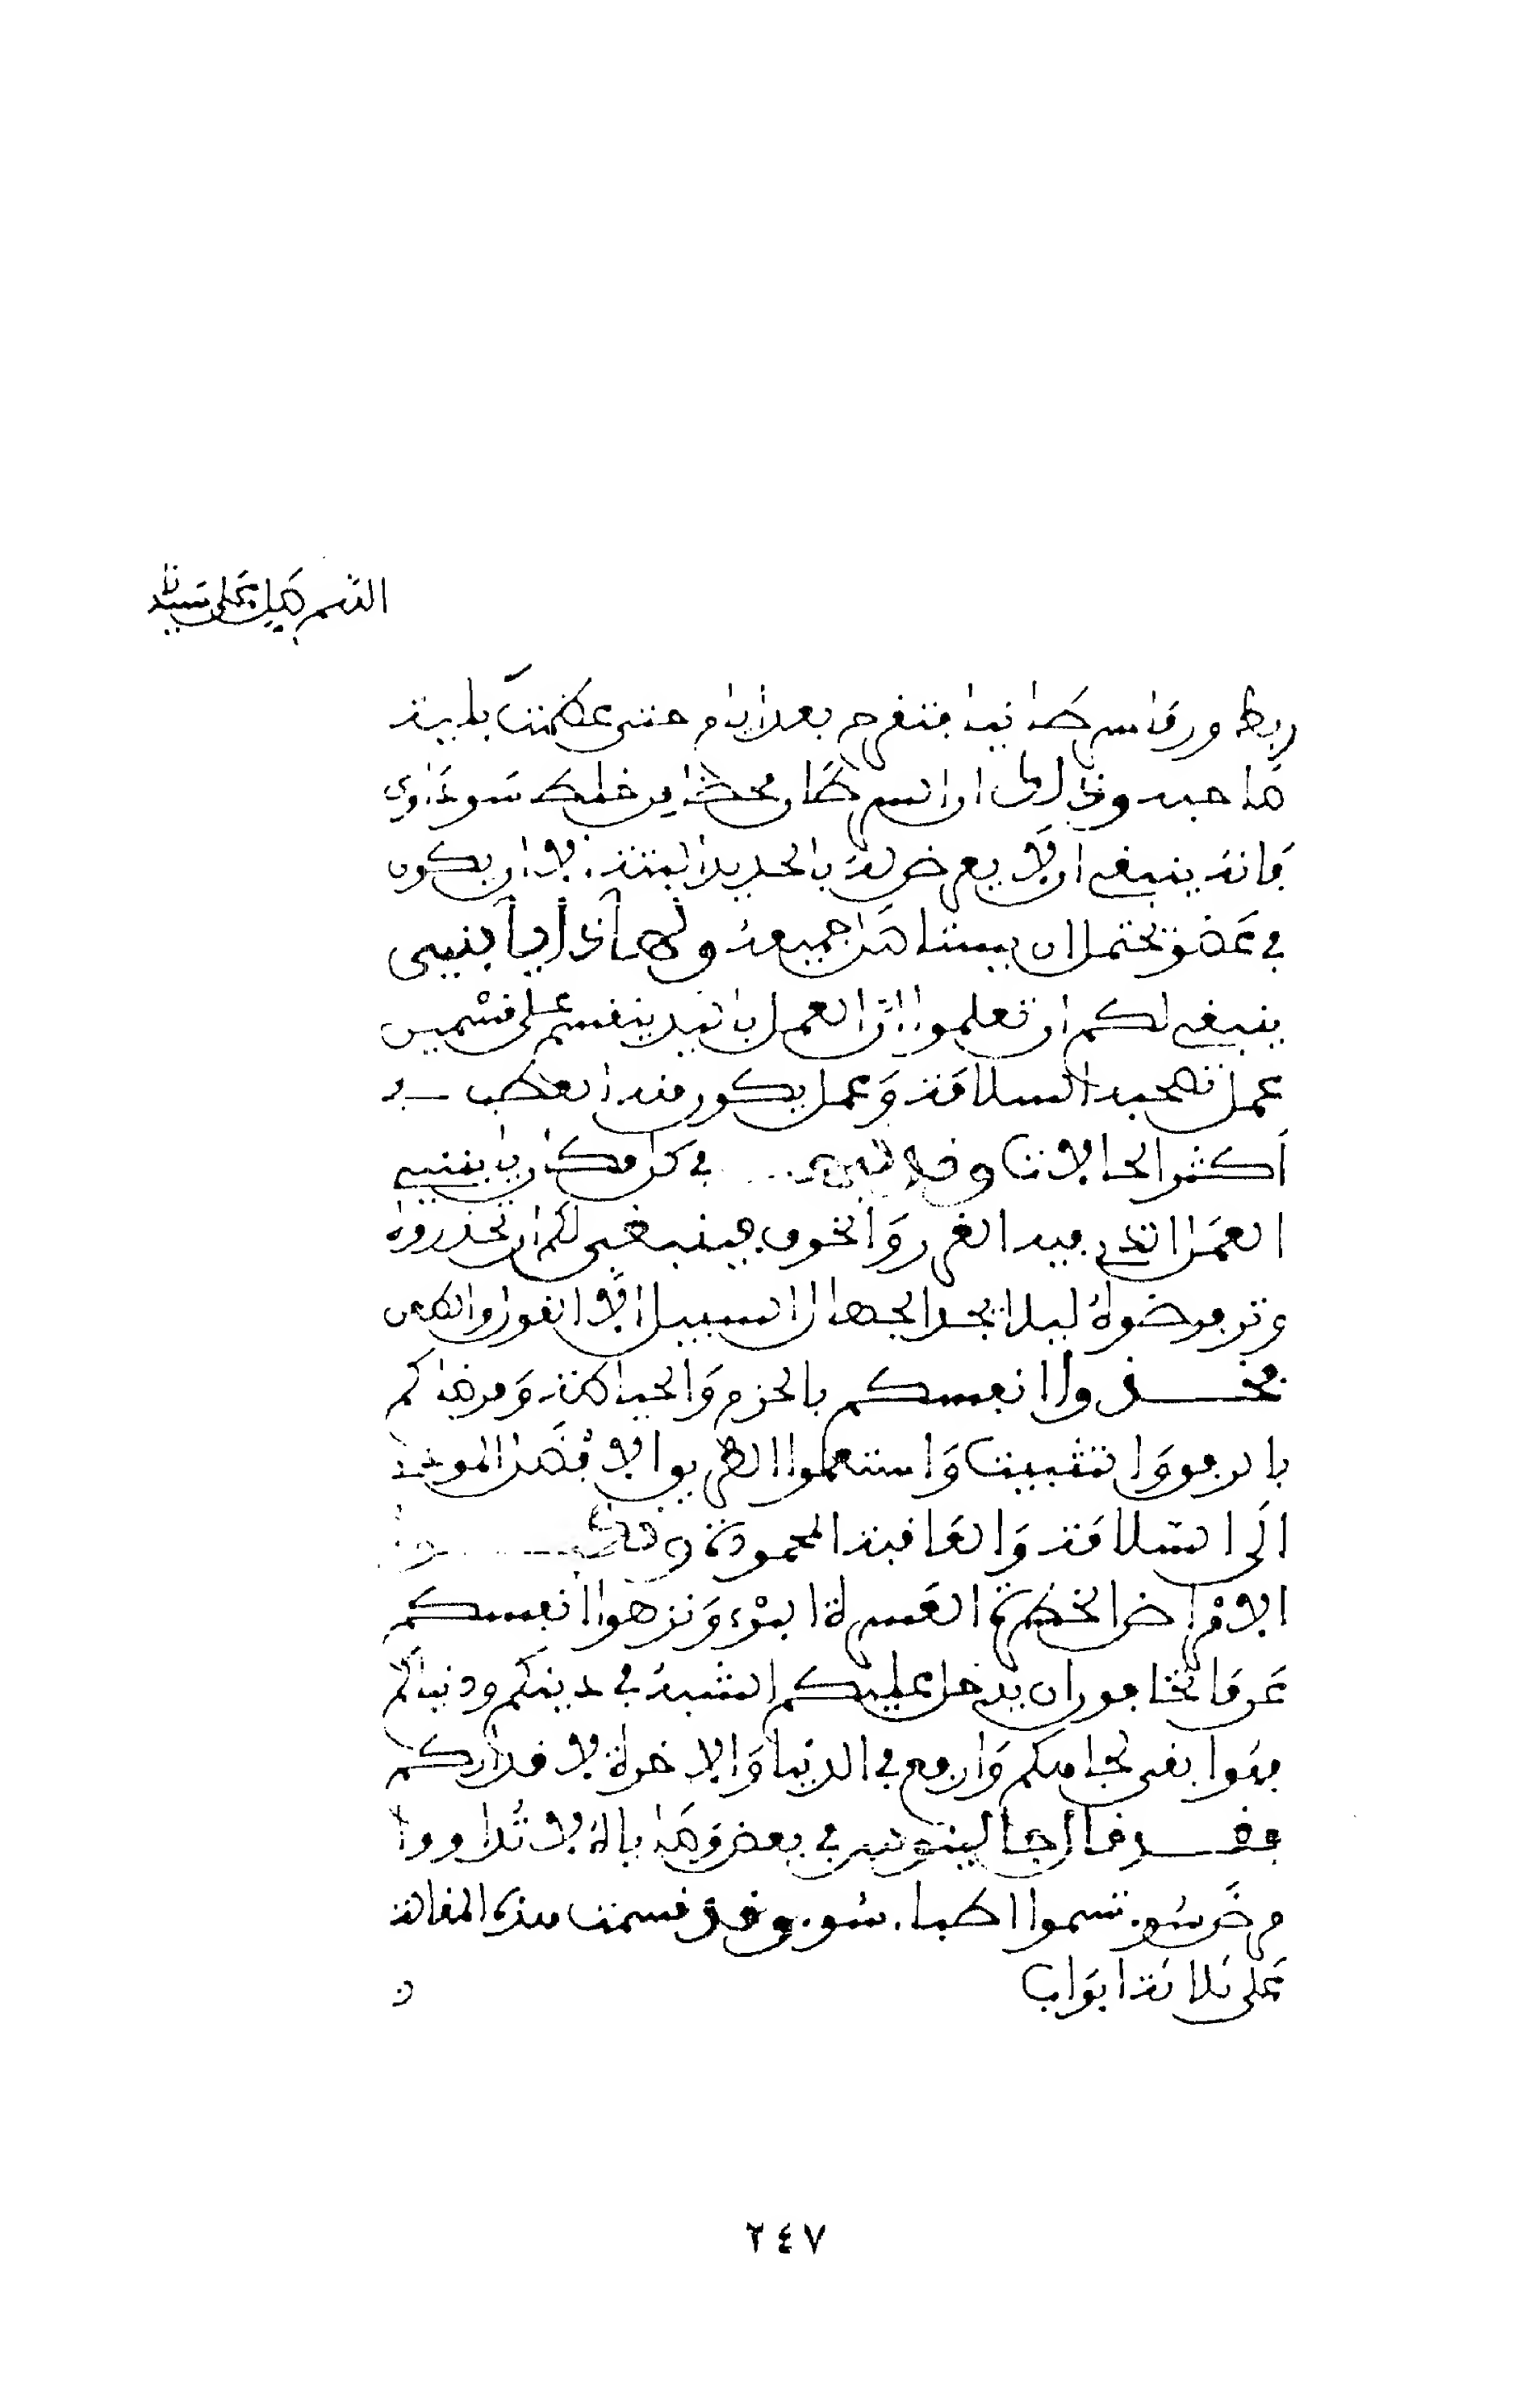 اللهم صل على سيدنا
ربط ورفا سرطانيا فتفرح بعد أيام حتى عظمت بلية
صاحبه وذلك ان السرطان محضا من خلط سوداوي
فانه ينبغي ان لا يعرض له بالحديد البتة الا ان يكون
في عضو يحتمل ان يستاصل جميعه ولهاذا يا بني
ينبغي لكم ان تعلموا ان العمل باليد ينقسم على قسمين
عمل تصحبه السلامة وعمل يكون منه العطب في
أكثر الحالات وقد في كل مكان يأتي فيه
العمل الذي فيه الغرر والخوف فينبغي لكم ان تحذروه
وترفضوه ليلا يجد الجهال السبيل الى القول والطعن
فخذوا لانفسكم بالحزم والحياطة ومرضاكم
بالرفق والتثبيت واستعملوا الطريق الافضل المودي
الى السلامة والعاقبة المحمودة وتنكبوا
الامراض الخطرة العسرة البرء ونزهوا انفسكم
عن ما تخافون ان يدخل عليكم الشبه في دينكم ودنياكم
فهو ابقى لجاهكم وارفع في الدنيا والاخرة لاقداركم
فقد قال جالينوس في بعض وصاياه لا تداووا
مرض سو تسموا اطباء سو وقد قسمت هذه المقالة
على ثلاثة ابواب
٢٤٧